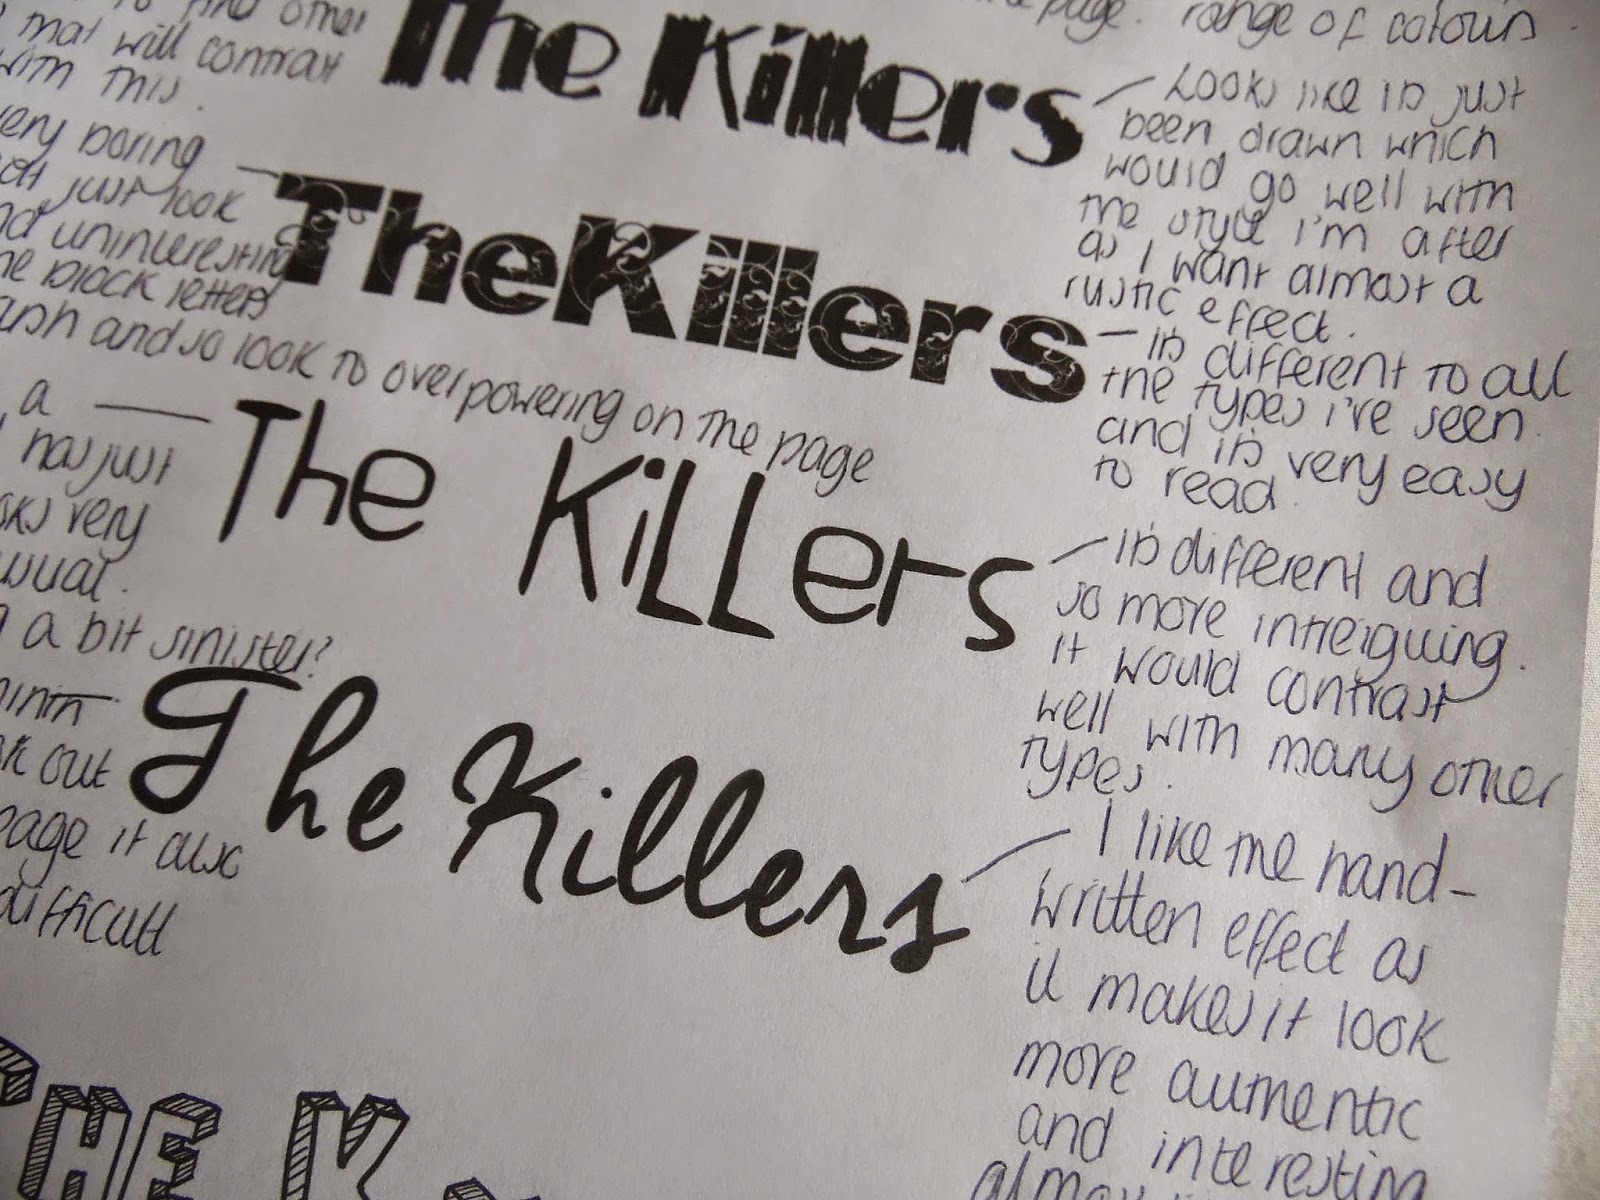 other
that will contrast
with this.
The Killers
page. range of colours.
Looks like it's just
been drawn which
would go well with
the style i'm after
as I want almost a
rustic effect.
very boring
just look
uninteresting
block letters
and so look to overpowering on the page
TheKillers
It's different to all
the types i've seen.
and it's very easy
to read.
a
has just
very
The KiLLers
It's different and
so more intreiguing.
It would contrast
well with many other
types.
a bit sinister?
out
page it also
difficult
The Killers
I like the hand-
written effect as
it makes it look
more authentic
and interesting
THE K